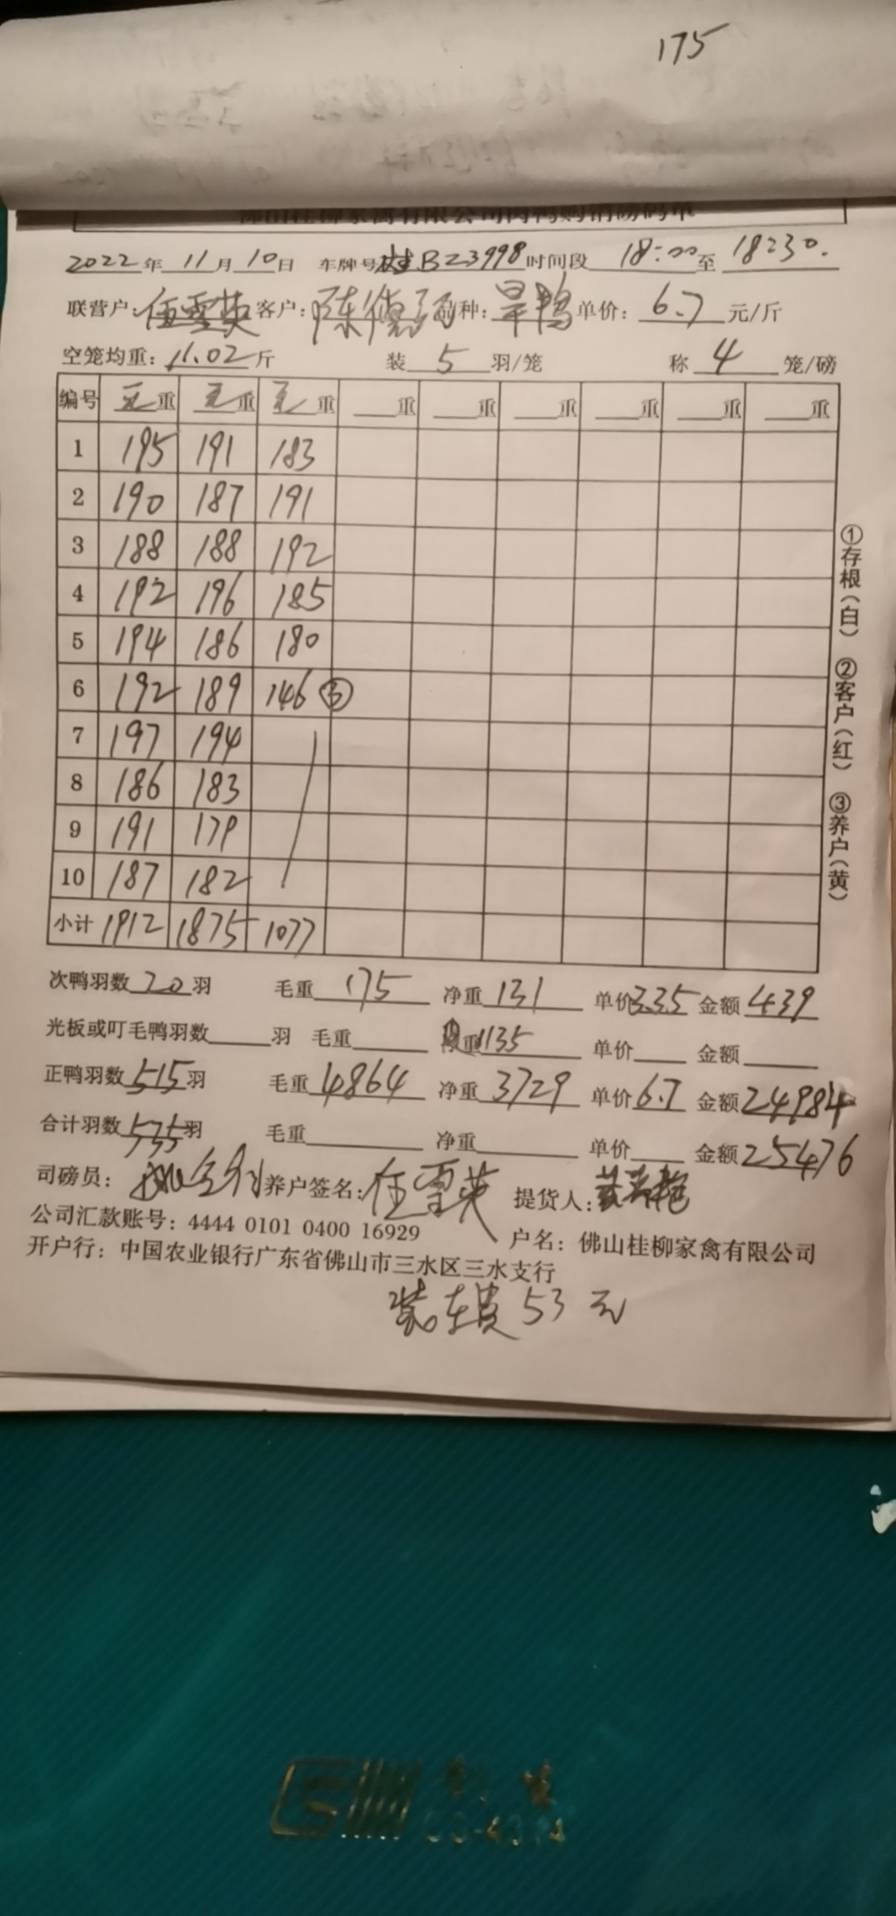 175
佛山桂柳家禽有限公司肉鸭购销磅码单
2022年11月10日 车牌号桂BZ3998时间段18:00至18:30.
联营户:任雪英 客户:陈 品种:旱鸭 单价:6.7元/斤
空笼均重:11.02斤 装5羽/笼 称4笼/磅
编号 毛重 毛重 毛重 重 重 重 重 重 重
1 195 191 183
2 190 187 191
3 188 188 192
4 192 196 185
5 194 186 180
6 192 189 146 ③
7 197 194
8 186 183
9 191 179
10 187 182
小计 1912 1875 1077
①存根(白) ②客户(红) ③养户(黄)
次鸭羽数20羽 毛重175 净重131 单价3.35 金额439
光板或叮毛鸭羽数 羽 毛重 重1135 单价 金额
正鸭羽数515羽 毛重4864 净重3729 单价6.7 金额24984
合计羽数535羽 毛重 净重 单价 金额25476
司磅员: 养户签名:任雪英 提货人:
公司汇款账号:4444 0101 0400 16929 户名:佛山桂柳家禽有限公司
开户行:中国农业银行广东省佛山市三水区三水支行
装车费53元